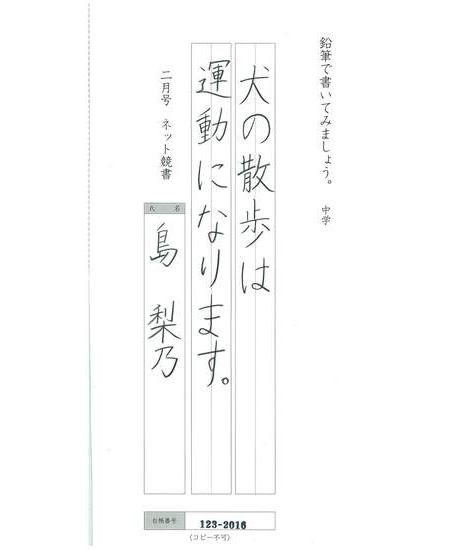 鉛筆で書いてみましょう。 中学
犬の散歩は
運動になります。
二月号 ネット競書
氏 名
島 梨乃
台帳番号 123-2016
(コピー不可)